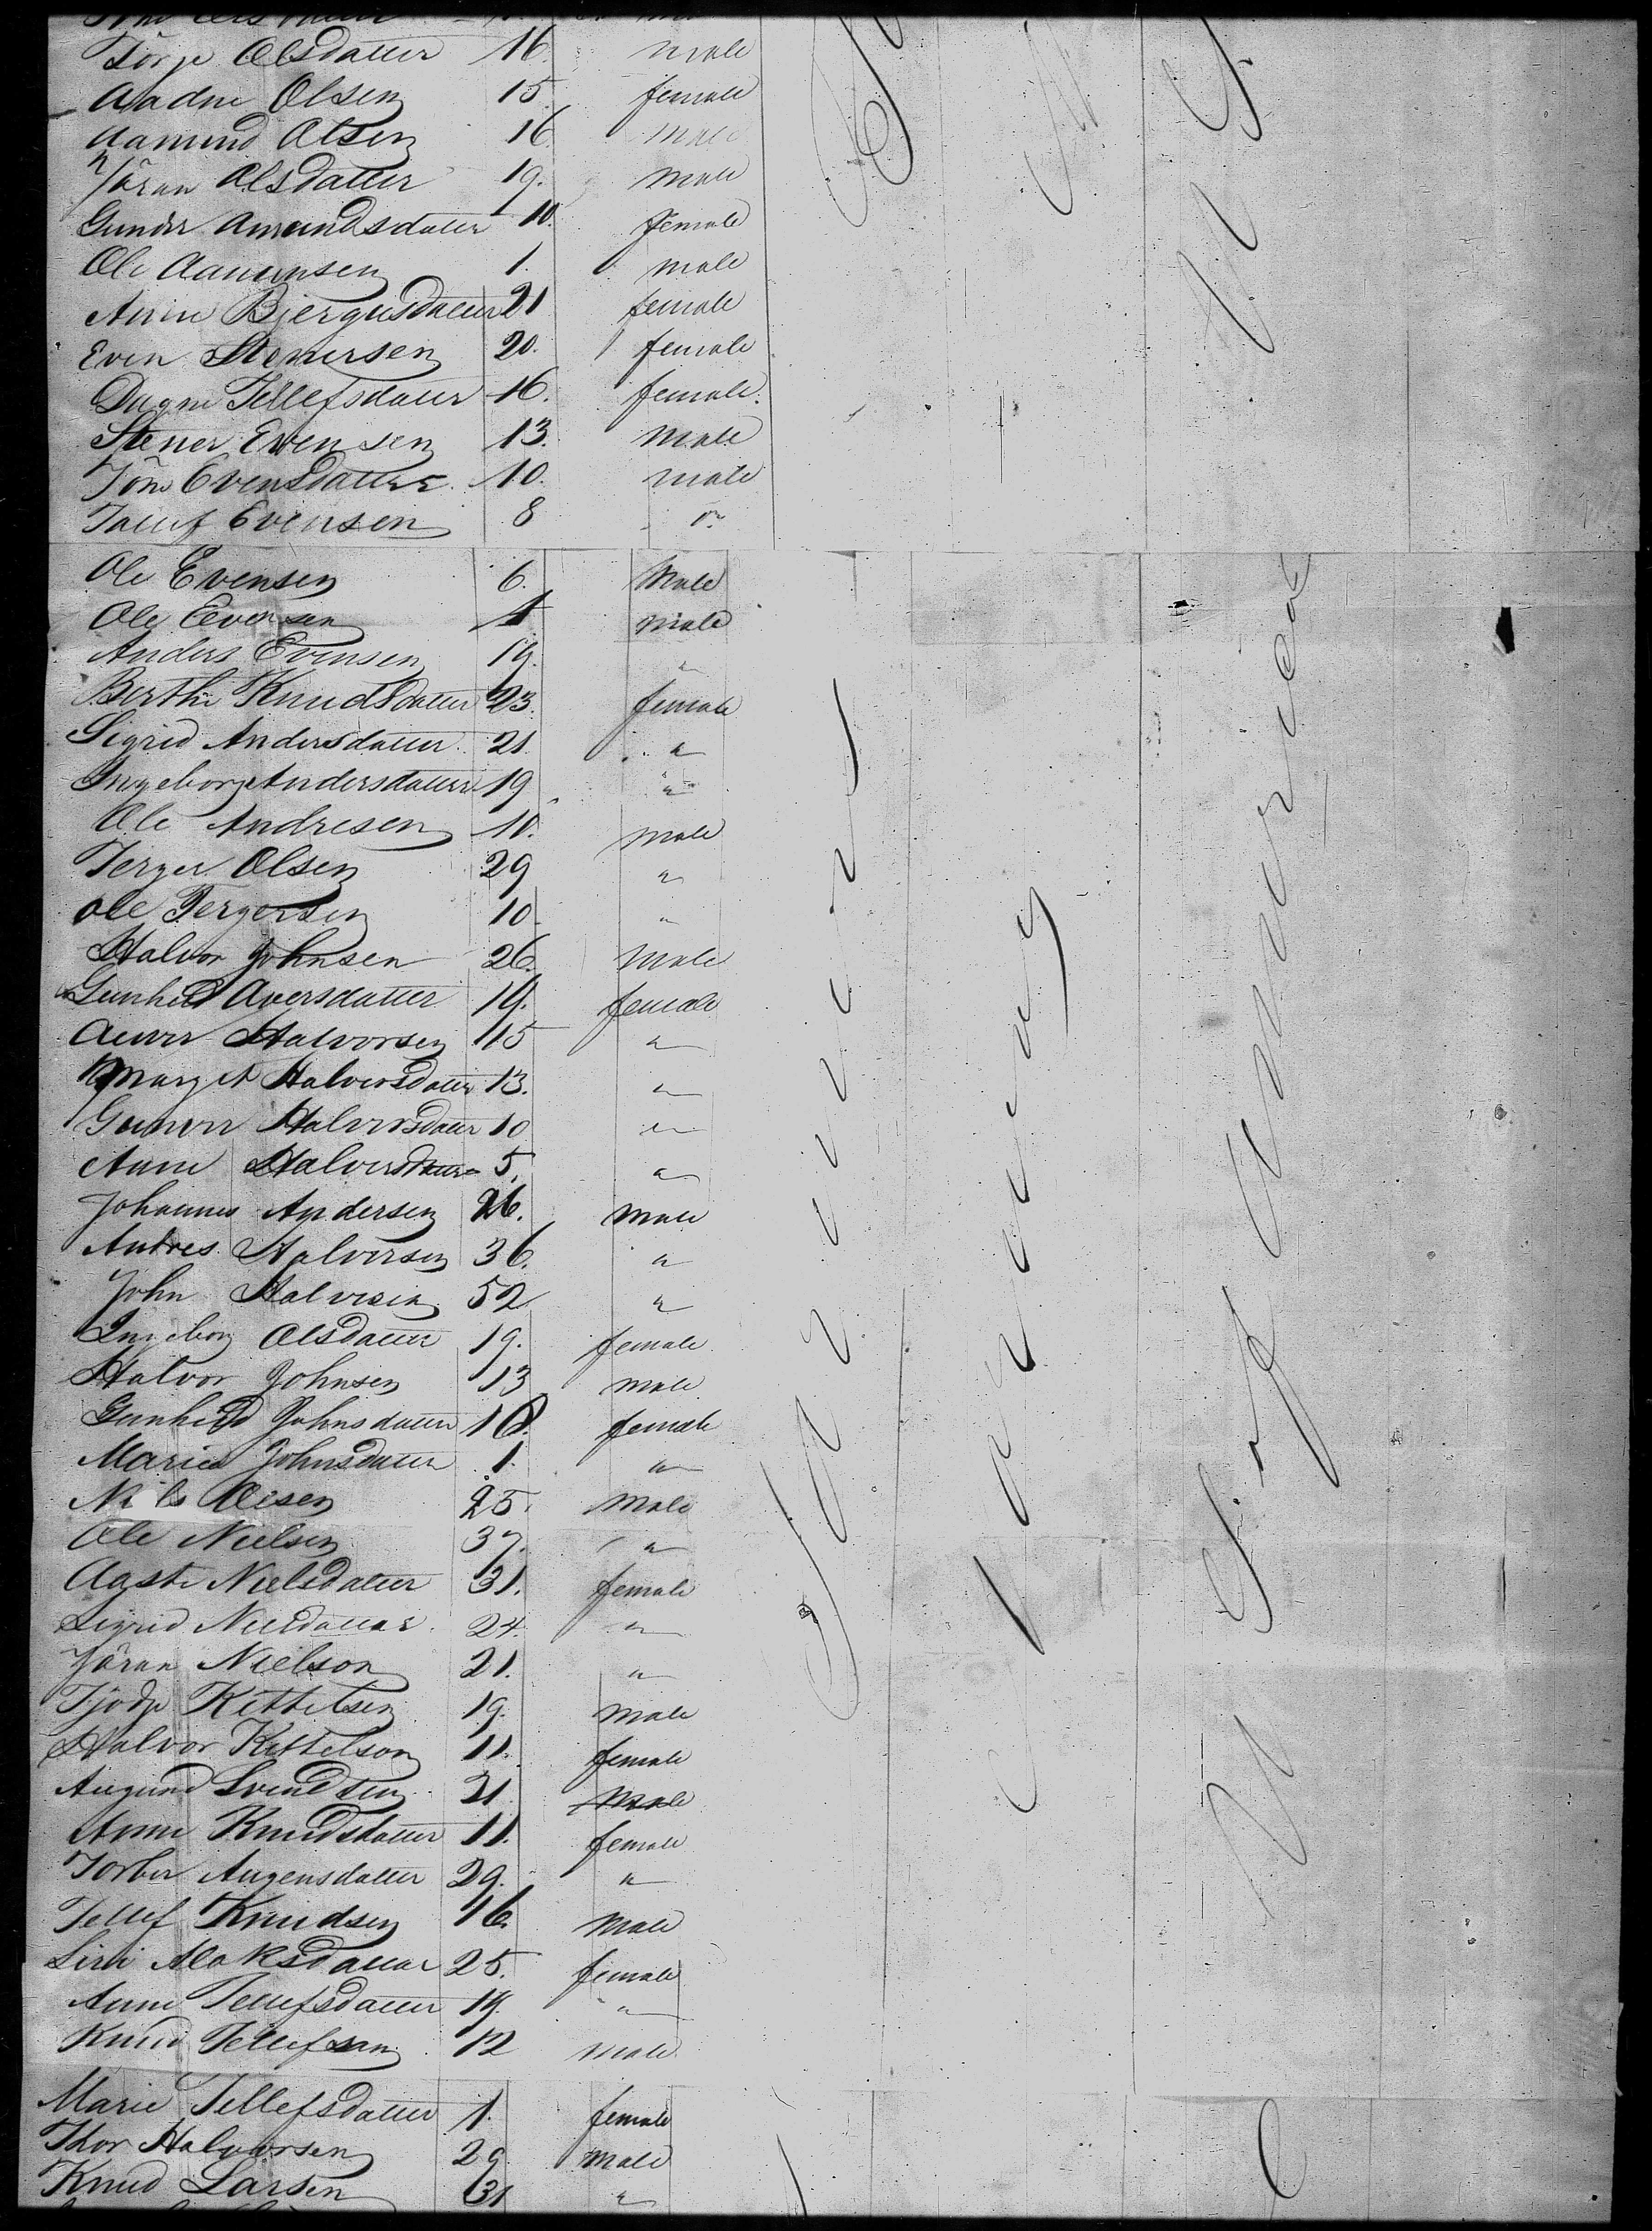 Törje Olsdatter 16. male
Aadne Olsen 15. female
Aamund Olsen 16. male
Jöran Olsdatter 19. male
Gunder Amundsdatter 10. female
Ole Aamunsen 1. male
Anne Bjergusdatter 21 female
Even Stenersen 20. female
Dagne Tellefsdatter 16. female.
Stener Evensen 13. male
Töne Evensdatter 10. male
Tallef Evensen 8 "
Ole Evensen 6. Male
Ole Evensen 4 male
Anders Evensen 19. "
Berthe Knudsdatter 23. female
Sigrid Andersdatter 21 "
Ingeborg Andersdatter 19 "
Ole Andresen 10. male
Terger Olsen 29 "
Ole Tergersen 10 "
Halvor Johnsen 26. Male
Gunhild Aversdatter 19. female
Halvorsen 15 "
Marget Halvorsdatter 13. "
Gunver Halvorsdatter 10 "
Anne Halvorsdatter 5. "
Johannes Andersen 26. male
Andres Halversen 36. "
John Halvesen 52 "
Ingeborg Olsdatter 19. female
Halvor Johnsen 13 male
Gunhild Johnsdatter 10. female
Marie Johnsdatter 1. "
Nils Olesen 25. Male
Ole Nielsen 37. "
Aaste Nielsdatter 31. female
Sigrid Nielsdatter 24. "
Jöran Nielson 21. "
Kittelsen 19. male
Halvor Kittelson 11. female
Augund Svendsen 21 Male
Anne Knudsdatter 11. female
Torber Augensdatter 29. "
Tellef Knudsen 16. Male
Siri Aslaksdatter 25. female
Anne Tellefsdatter 19. "
Knud Tellefsen 12 male
Marie Tellefsdatter 1. female
Thor Halvorsen 29. Male
Knud Larsen 31 "
Norway
America